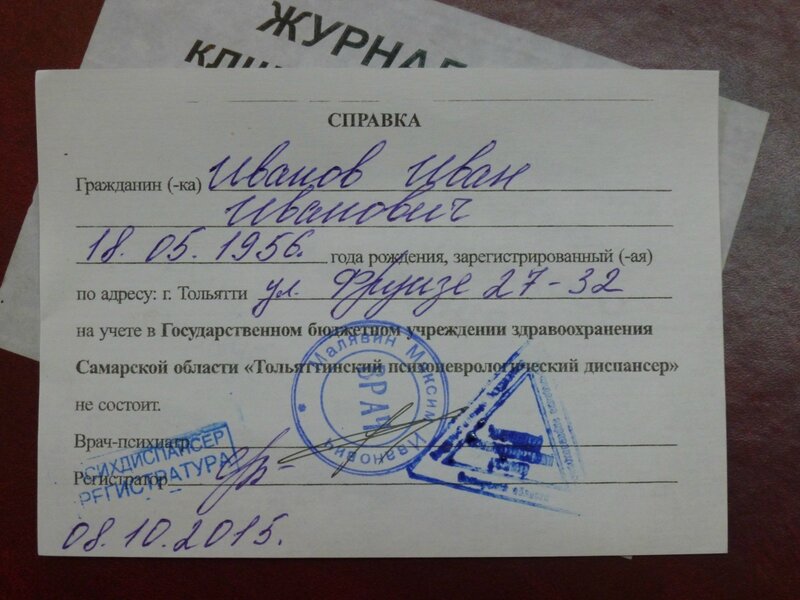 ЖУРНАЛ
СПРАВКА
Гражданин (-ка) Иванов Иван
Иванович
18. 05. 1956. года рождения, зарегистрированный (-ая)
по адресу: г. Тольятти ул. Фрунзе 27-32
на учете в Государственном бюджетном учреждении здравоохранения
Самарской области «Тольяттинский психоневрологический диспансер»
не состоит.
Врач-психиатр
Регистратор
08.10.2015.
Малявин Максим Иванович
ВРАЧ
ПСИХДИСПАНСЕР
РЕГИСТРАТУРА